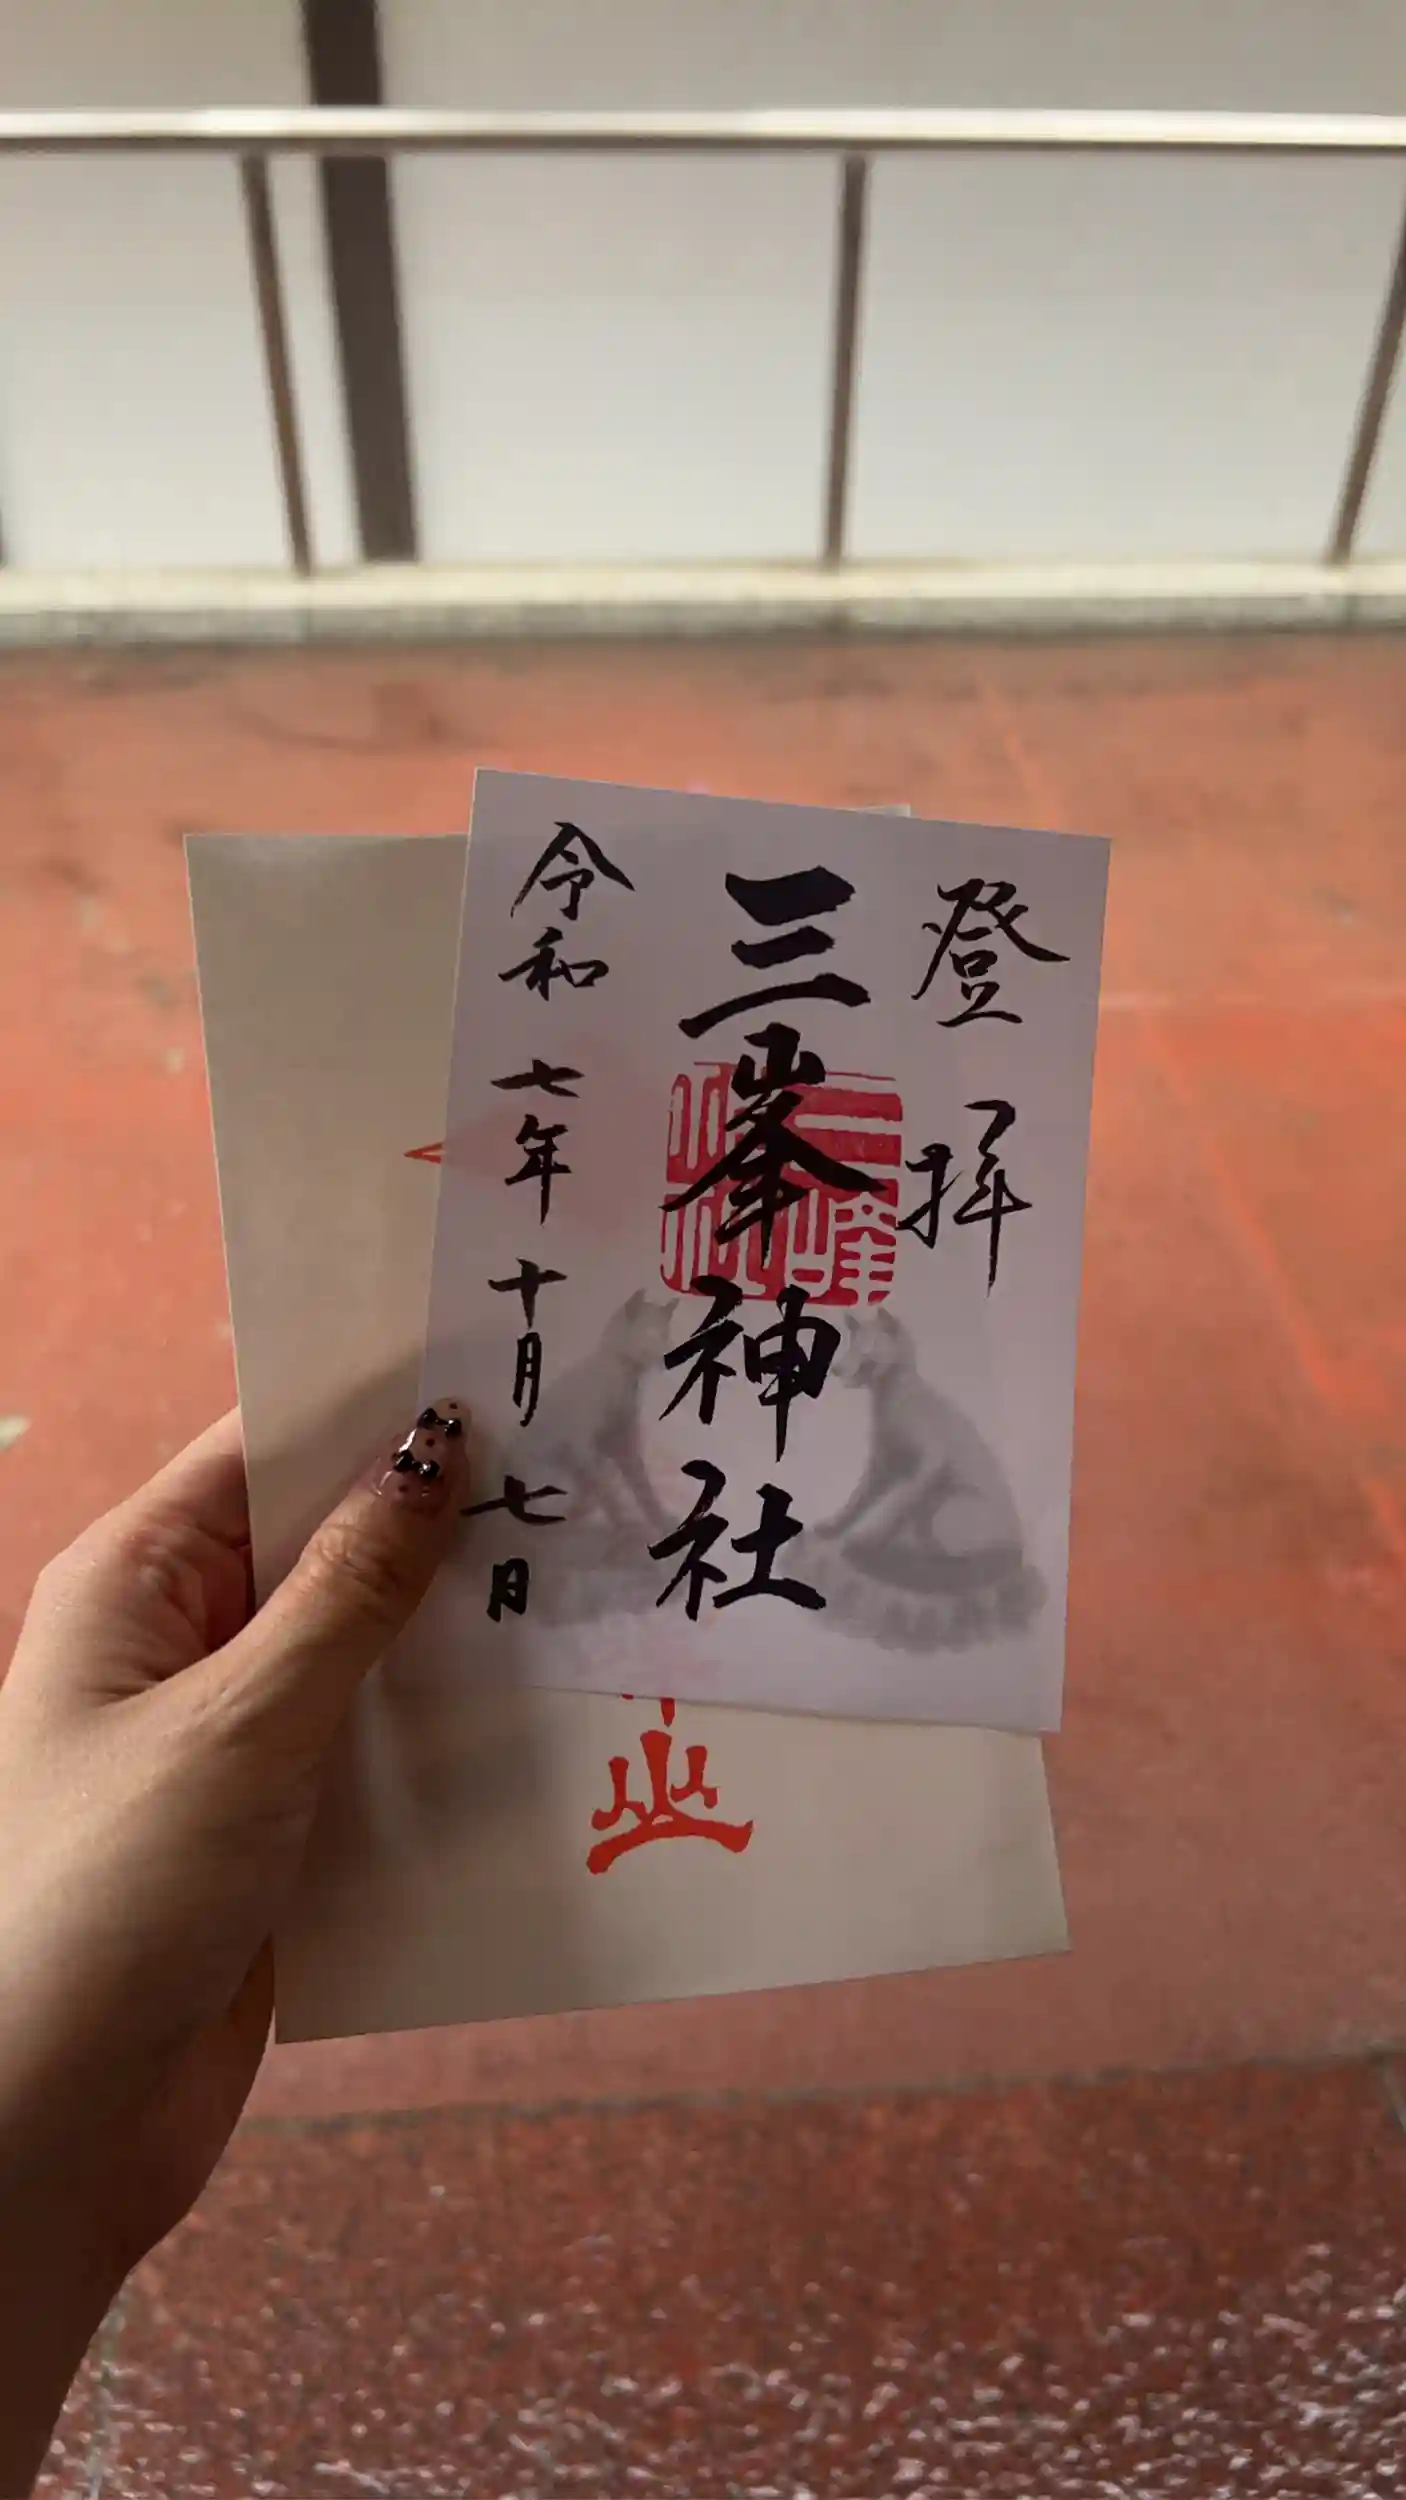 登拝
三峯神社
令和七年十月七日